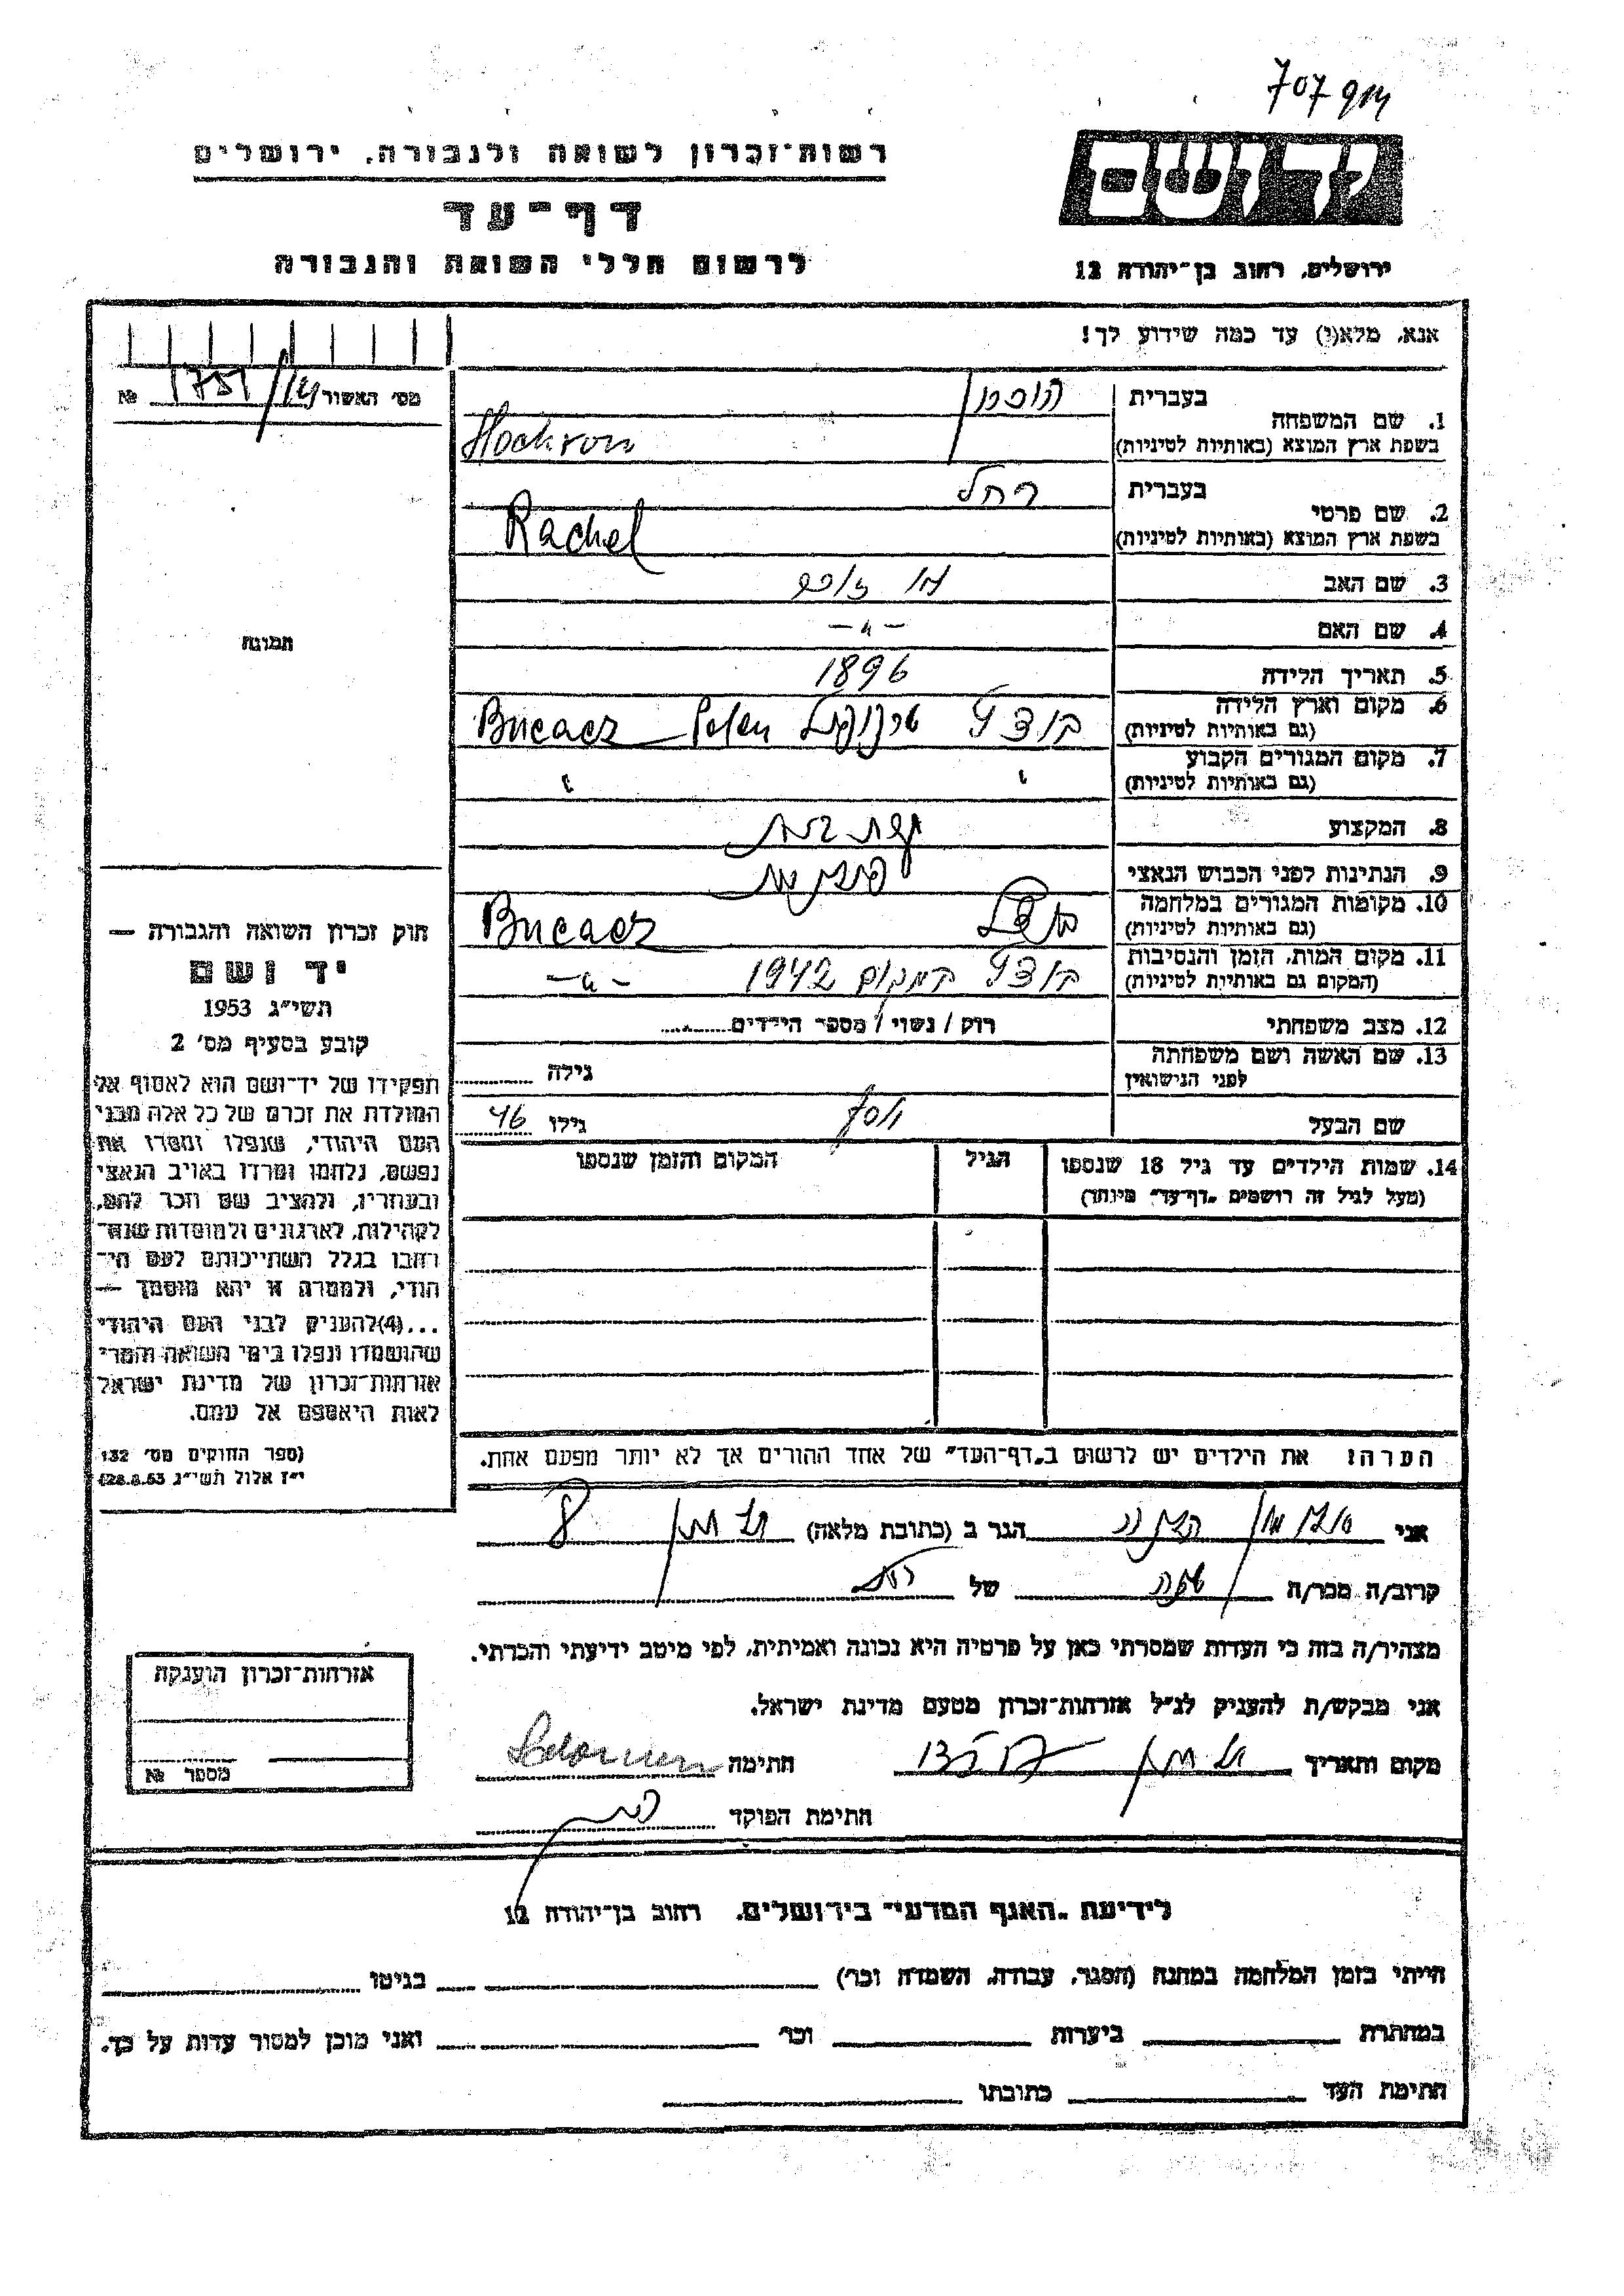 707
רשות־זכרון לשואה ולגבורה, ירושלים
יד ושם
דף־עד
לרשום חללי השואה והגבורה
ירושלים, רחוב בן־יהודה 12
אנא, מלא(י) עד כמה שידוע לך!
מס' האשור №
1. שם המשפחה
בעברית
בשפת ארץ המוצא (באותיות לטיניות)
2. שם פרטי
בעברית רחל
בשפת ארץ המוצא (באותיות לטיניות) Rachel
3. שם האב לא זוכר
4. שם האם —"—
5. תאריך הלידה 1896
6. מקום וארץ הלידה
(גם באותיות לטיניות)
7. מקום המגורים הקבוע
(גם באותיות לטיניות)
8. המקצוע עקרת בית
9. הנתינות לפני הכבוש הנאצי
10. מקומות המגורים במלחמה
(גם באותיות לטיניות)
11. מקום המות, הזמן והנסיבות 1942 —"—
(המקום גם באותיות לטיניות)
12. מצב משפחתי רוק / נשוי / מספר הילדים
13. שם האשה ושם משפחתה
לפני הנישואין
גילה
שם הבעל יוסף גילו 46
14. שמות הילדים עד גיל 18 שנספו
(מעל לגיל זה רושמים „דף־עד" מיוחד)
הגיל
המקום והזמן שנספו
תמונה
חוק זכרון השואה והגבורה —
יד ושם
תשי"ג 1953
קובע בסעיף מס' 2
תפקידו של יד־ושם הוא לאסוף אל
המולדת את זכרם של כל אלה מבני
העם היהודי, שנפלו ומסרו את
נפשם, נלחמו ומרדו באויב הנאצי
ובעוזריו, ולהציב שם וזכר להם,
לקהילות, לארגונים ולמוסדות שנח־
רבו בגלל השתייכותם לעם הי־
הודי, ולמטרה זו יהא מוסמך —
...(4) להעניק לבני העם היהודי
שהושמדו ונפלו בימי השואה והמרי
אזרחות־זכרון של מדינת ישראל
לאות היאספם אל עמם.
(ספר החוקים מס' 132
י"ז אלול תשי"ג 28.8.53)
הערה: את הילדים יש לרשום ב„דף־העד" של אחד ההורים אך לא יותר מפעם אחת.
אני הגר ב (כתובת מלאה) 8
קרוב/ה מכר/ה של
מצהיר/ה בזה כי העדות שמסרתי כאן על פרטיה היא נכונה ואמיתית, לפי מיטב ידיעתי והכרתי.
אני מבקש/ת להעניק לנ"ל אזרחות־זכרון מטעם מדינת ישראל.
מקום ותאריך חתימה
חתימת הפוקד
אזרחות־זכרון הוענקה
מספר №
לידיעת „האגף המדעי" בירושלים, רחוב בן־יהודה 12
הייתי בזמן המלחמה במחנה (הסגר, עבודה, השמדה וכו') בגיטו
במחתרת ביערות וכו' ואני מוכן למסור עדות על כך.
חתימת העד כתובתו